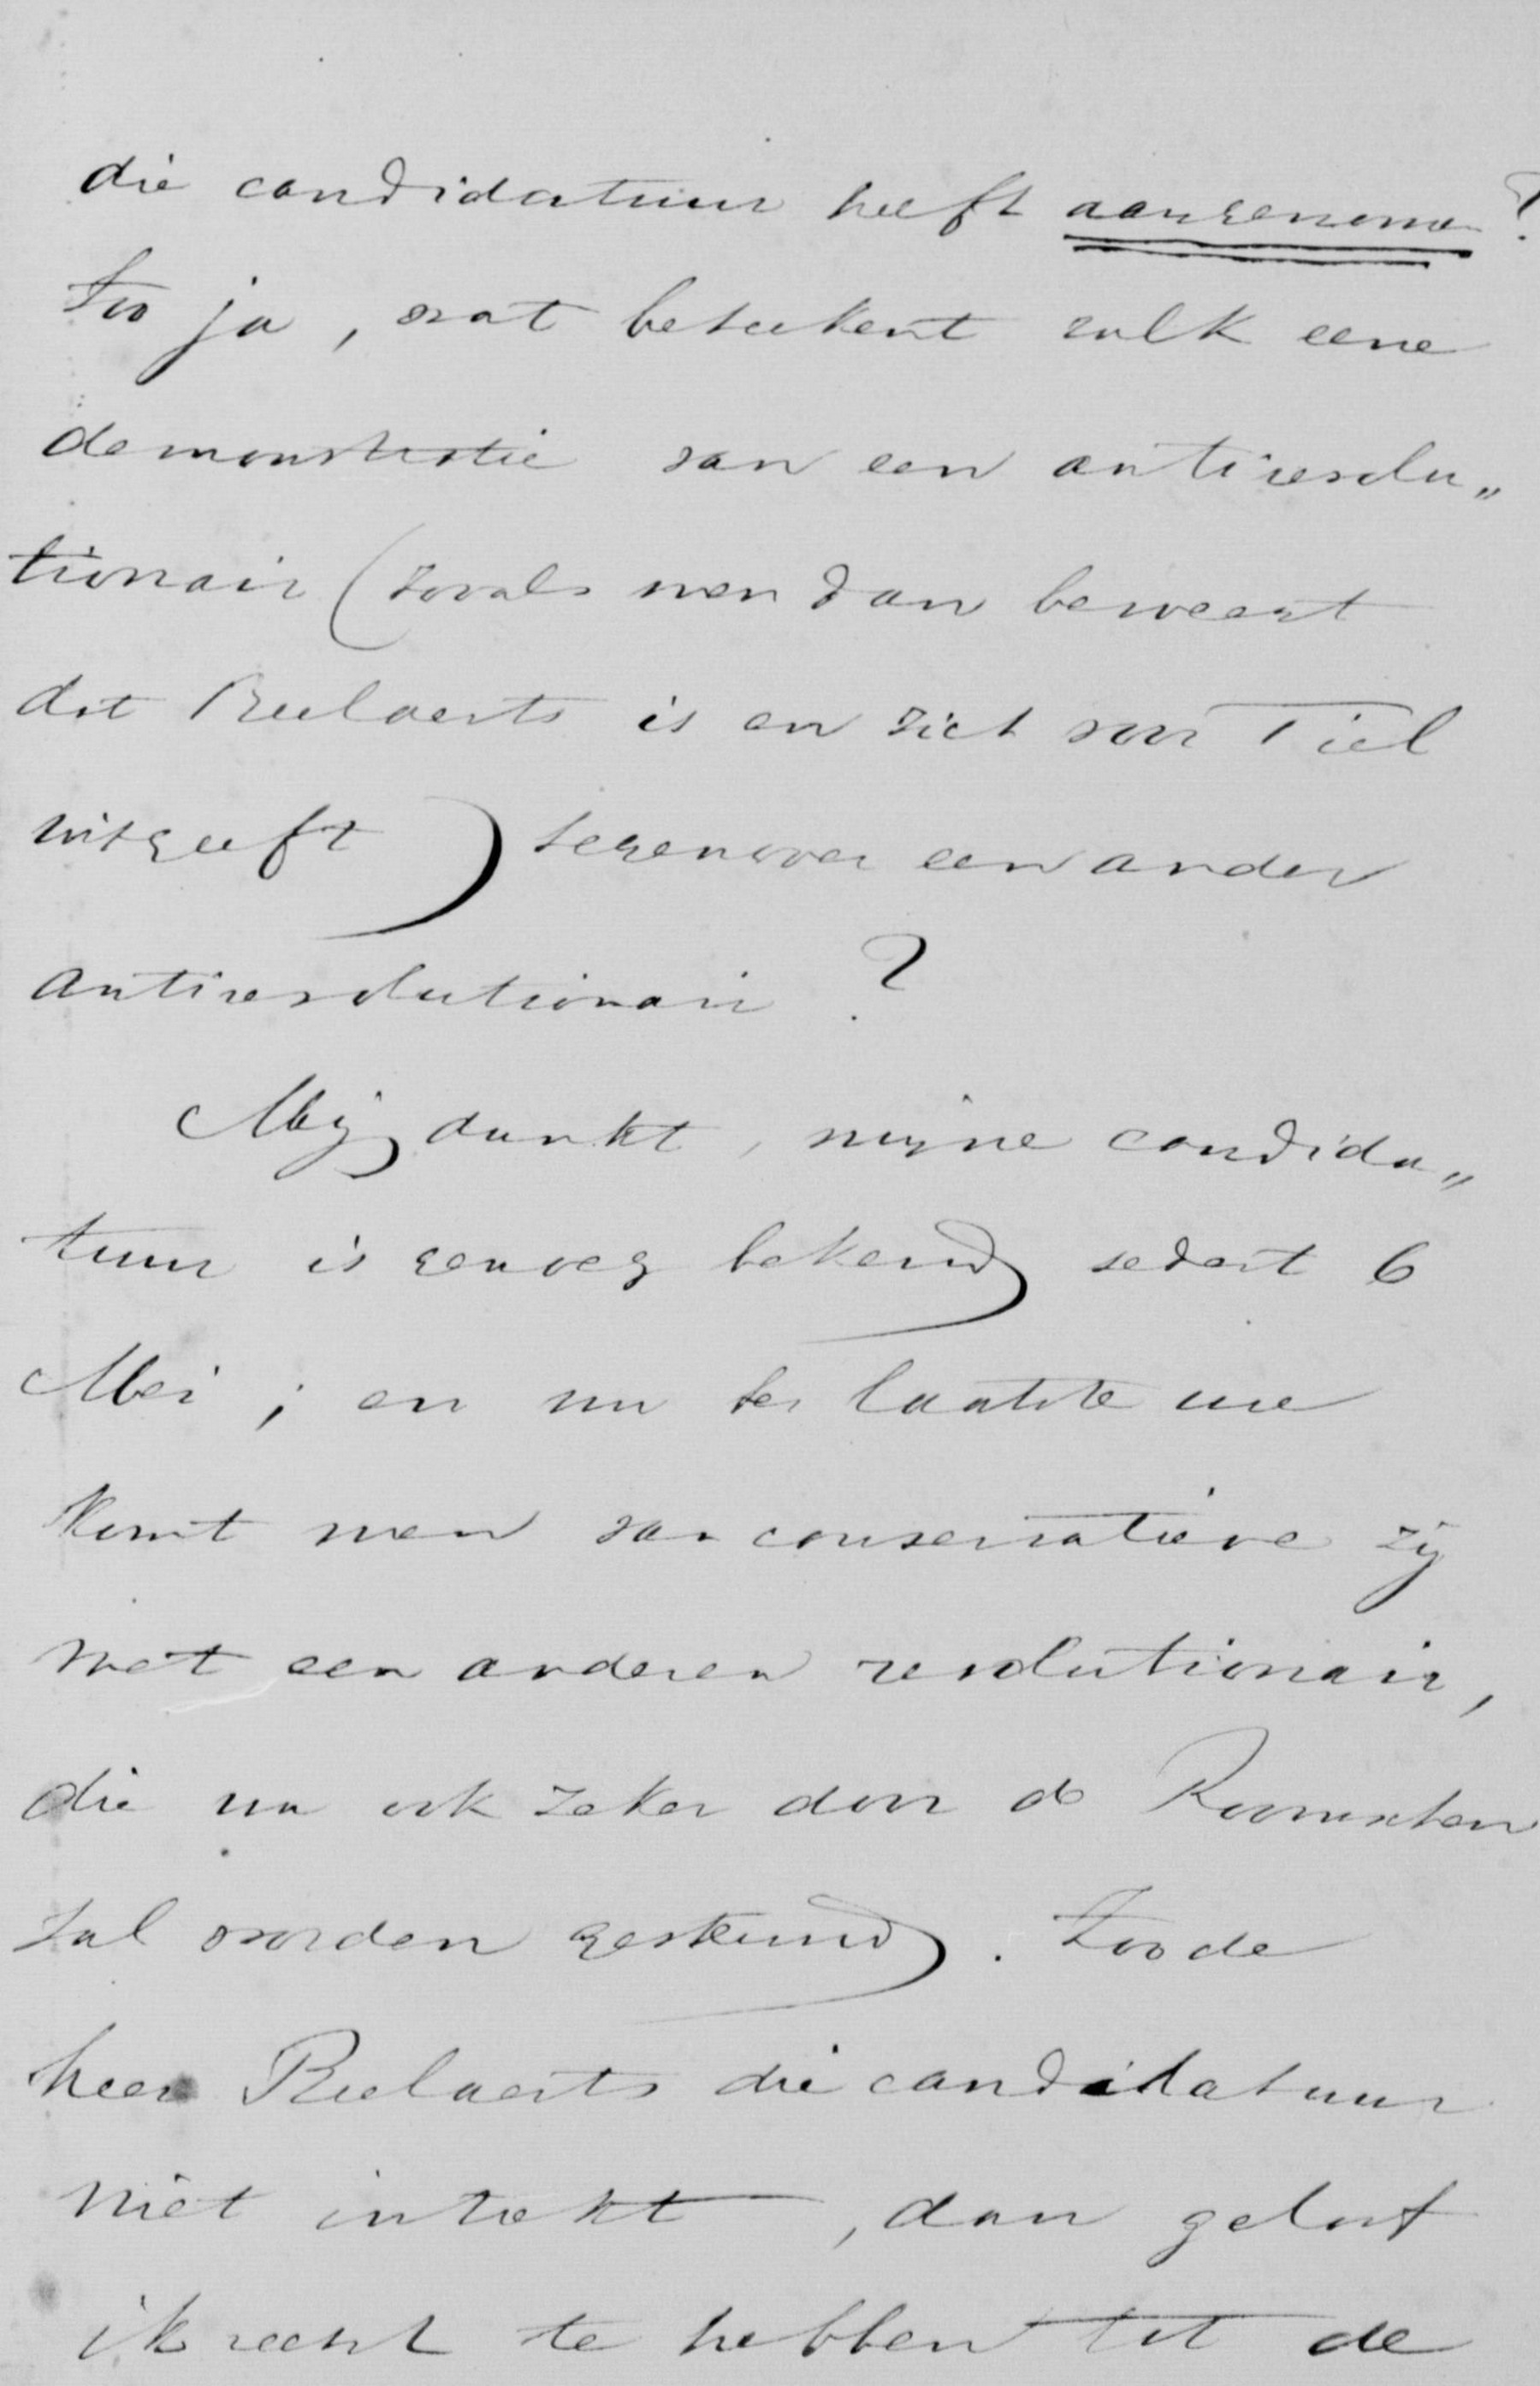 die candidatuur heeft aangenomen?
Zoo ja, wat beteekent zulk eene
demonstratie van een antirevolu„
tionair (zooals men dan beweert
dat Beelaerts is en zich voor Tiel
uitgeeft) tegenover een ander
antirevolutionair?
Mij dunkt, mijne candida„
tuur is genoeg bekend sedert 6
Mei; en nu ter laatste ure
komt men van conservatieve zij
met een anderen revolutionair,
die nu ook zeker door de Roomschen
zal worden gesteund. Zoo de
heer Beelaerts die candidatuur
niet intrekt, dan geloof
ik recht te hebben tot de